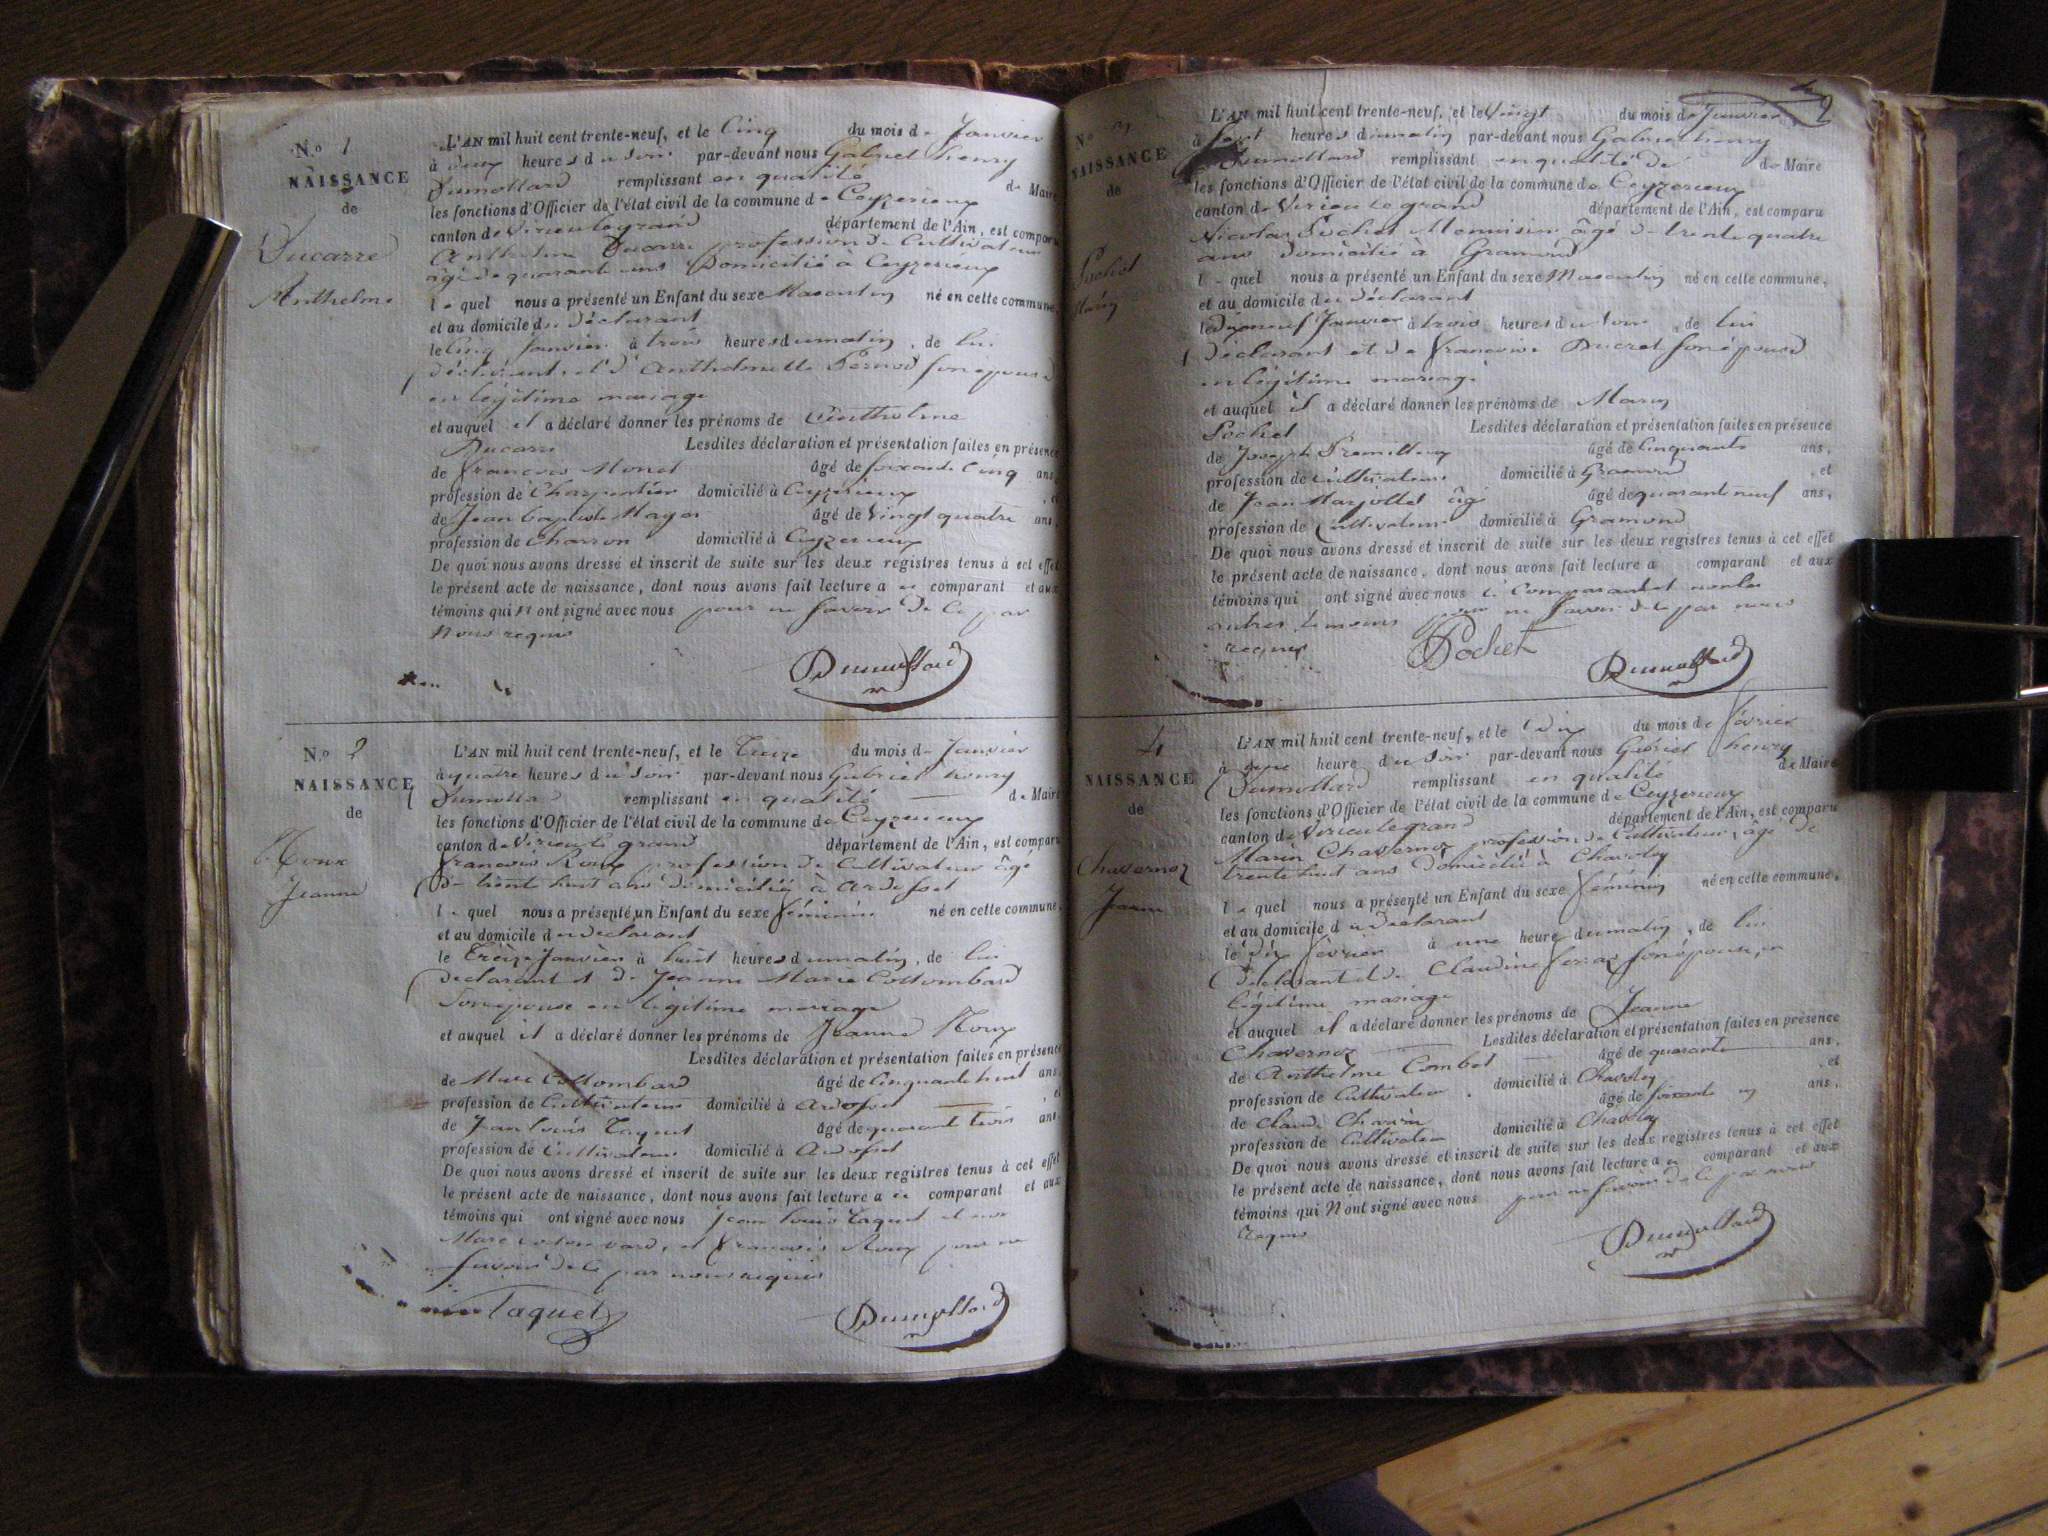 N.o 1
NAISSANCE
de
Ducarre
Anthelme
L'AN mil huit cent trente-neuf, et le Cinq du mois de Janvier
à deux heures du soir par-devant nous Gabriel henry
Dumollard remplissant en qualité de Maire
les fonctions d'Officier de l'état civil de la commune de Ceyzerieux
canton de Virieu le grand département de l'Ain, est comparu
Anthelme Ducarre profession de Cultivateur
âgé de quarante ans Domicilié à Ceyzerieux
lequel nous a présenté un Enfant du sexe Masculin né en cette commune,
et au domicile du Déclarant
le Cinq Janvier à trois heures du matin, de lui
déclarant et d'Anthelmette Pernod son épouse
en légitime mariage
et auquel il a déclaré donner les prénoms de Anthelme
Ducarre Lesdites déclaration et présentation faites en présence
de françois Monet âgé de soixante Cinq ans,
profession de Charpentier domicilié à Ceyzerieux, et
de Jean baptiste Mayer âgé de Vingt quatre ans,
profession de Charron domicilié à Ceyzerieux
De quoi nous avons dressé et inscrit de suite sur les deux registres tenus à cet effet
le présent acte de naissance, dont nous avons fait lecture au comparant et aux
témoins qui N'ont signé avec nous pour ne savoir de Ce par
Nous requis
Dumollard
N.o 2
NAISSANCE
de
Roux
Jeanne
L'AN mil huit cent trente-neuf, et le Treize du mois de Janvier
à quatre heures du soir par-devant nous Gabriel henry
Dumollard remplissant en qualité de Maire
les fonctions d'Officier de l'état civil de la commune de Ceyzerieux
canton de Virieu le grand département de l'Ain, est comparu
françois Roux profession de Cultivateur âgé
de trente huit ans domicilié à Ardosset
lequel nous a présenté un Enfant du sexe féminin né en cette commune,
et au domicile du declarant
le Treize Janvier à huit heures du matin, de lui
declarant et de Jeanne Marie Collombard
Son épouse en légitime mariage
et auquel il a déclaré donner les prénoms de Jeanne Roux
Lesdites déclaration et présentation faites en présence
de Marc Collombard âgé de Cinquante huit ans,
profession de Cultivateur domicilié à Ardosset et
de Jean louis Taquet âgé de quarante trois ans
profession de Cultivateur domicilié à Ardosset
De quoi nous avons dressé et inscrit de suite sur les deux registres tenus à cet effet
le présent acte de naissance, dont nous avons fait lecture au comparant et aux
témoins qui ont signé avec nous Jean louis Taquet et non
Marc Collombard, et françois Roux pour ne
savoir de Ce par nous requis
Taquet Dumollard
2
N.o 3
NAISSANCE
de
Pochet
Marin
L'AN mil huit cent trente-neuf, et le Vingt du mois de Janvier
à heures du matin par-devant nous Gabriel henry
Dumollard remplissant en qualité de de Maire
les fonctions d'Officier de l'état civil de la commune de Ceyzerieux
canton de Virieu le grand département de l'Ain, est comparu
Nicolas Pochet Menuisier âgé de trente quatre
ans domicilié à Gramond
lequel nous a présenté un Enfant du sexe Masculin né en cette commune,
et au domicile du Déclarant
le Dix neuf Janvier à trois heures du soir, de lui
déclarant et de françoise Ducret son épouse
en légitime mariage
et auquel il a déclaré donner les prénoms de Marin
Pochet Lesdites déclaration et présentation faites en présence
de Joseph âgé de Cinquante ans,
profession de Cultivateur domicilié à Gramond, et
de Jean Marjollet âgé âgé de quarante neuf ans,
profession de Cultivateur domicilié à Gramond
De quoi nous avons dressé et inscrit de suite sur les deux registres tenus à cet effet
le présent acte de naissance, dont nous avons fait lecture a comparant et aux
témoins qui ont signé avec nous le Comparant et non les
autres témoins pour ne savoir de Ce par nous
requis Pochet Dumollard
4
NAISSANCE
de
Chavernoz
Jeanne
L'AN mil huit cent trente-neuf, et le Dix du mois de février
à une heure du soir par-devant nous Gabriel henry
Dumollard remplissant en qualité de Maire
les fonctions d'Officier de l'état civil de la commune de Ceyzerieux
canton de Virieu le grand département de l'Ain, est comparu
Marin Chavernoz profession de Cultivateur, âgé de
trente huit ans domicilié à Chavoley
lequel nous a présenté un Enfant du sexe féminin né en cette commune,
et au domicile du Déclarant
le dix février à une heure du matin, de lui
Déclarant et de Claudine son épouse, en
légitime mariage
et auquel il a déclaré donner les prénoms de Jeanne
Chavernoz Lesdites déclaration et présentation faites en présence
de Anthelme Combet âgé de quarante ans,
profession de Cultivateur, domicilié à Chavoley, et
de Claude Chavin âgé de soixante un ans,
profession de Cultivateur domicilié à Chavoley
De quoi nous avons dressé et inscrit de suite sur les deux registres tenus à cet effet
le présent acte de naissance, dont nous avons fait lecture au comparant et aux
témoins qui N'ont signé avec nous pour ne savoir de Ce par nous
Requis
Dumollard